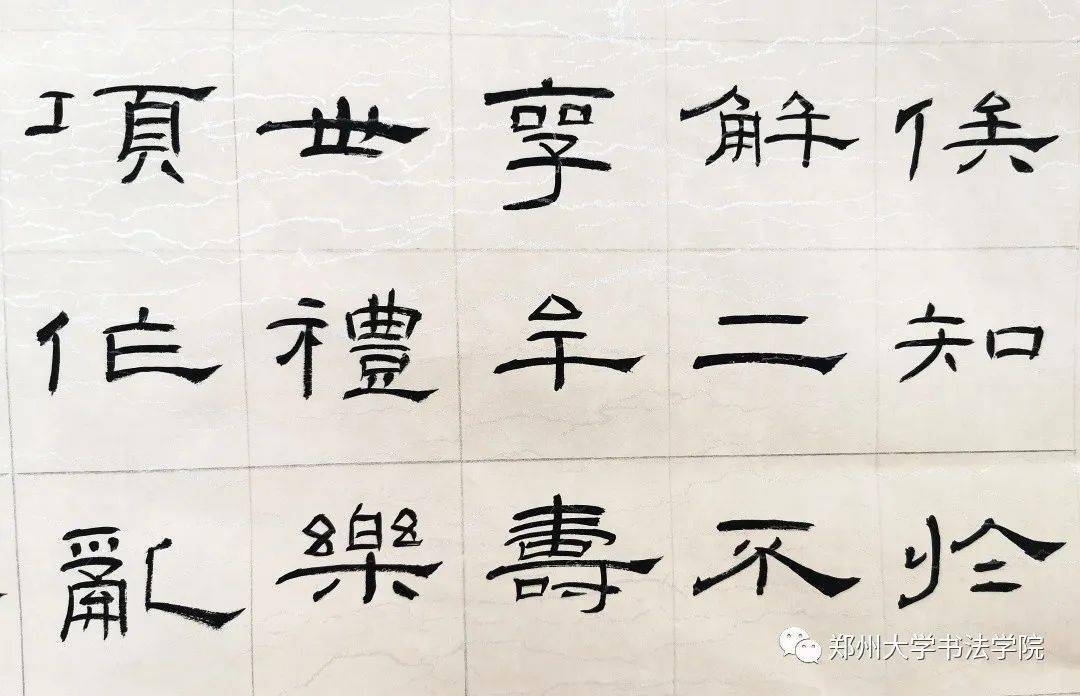 俟知於
解二不
享牟壽
世禮樂
項作亂
郑州大学书法学院